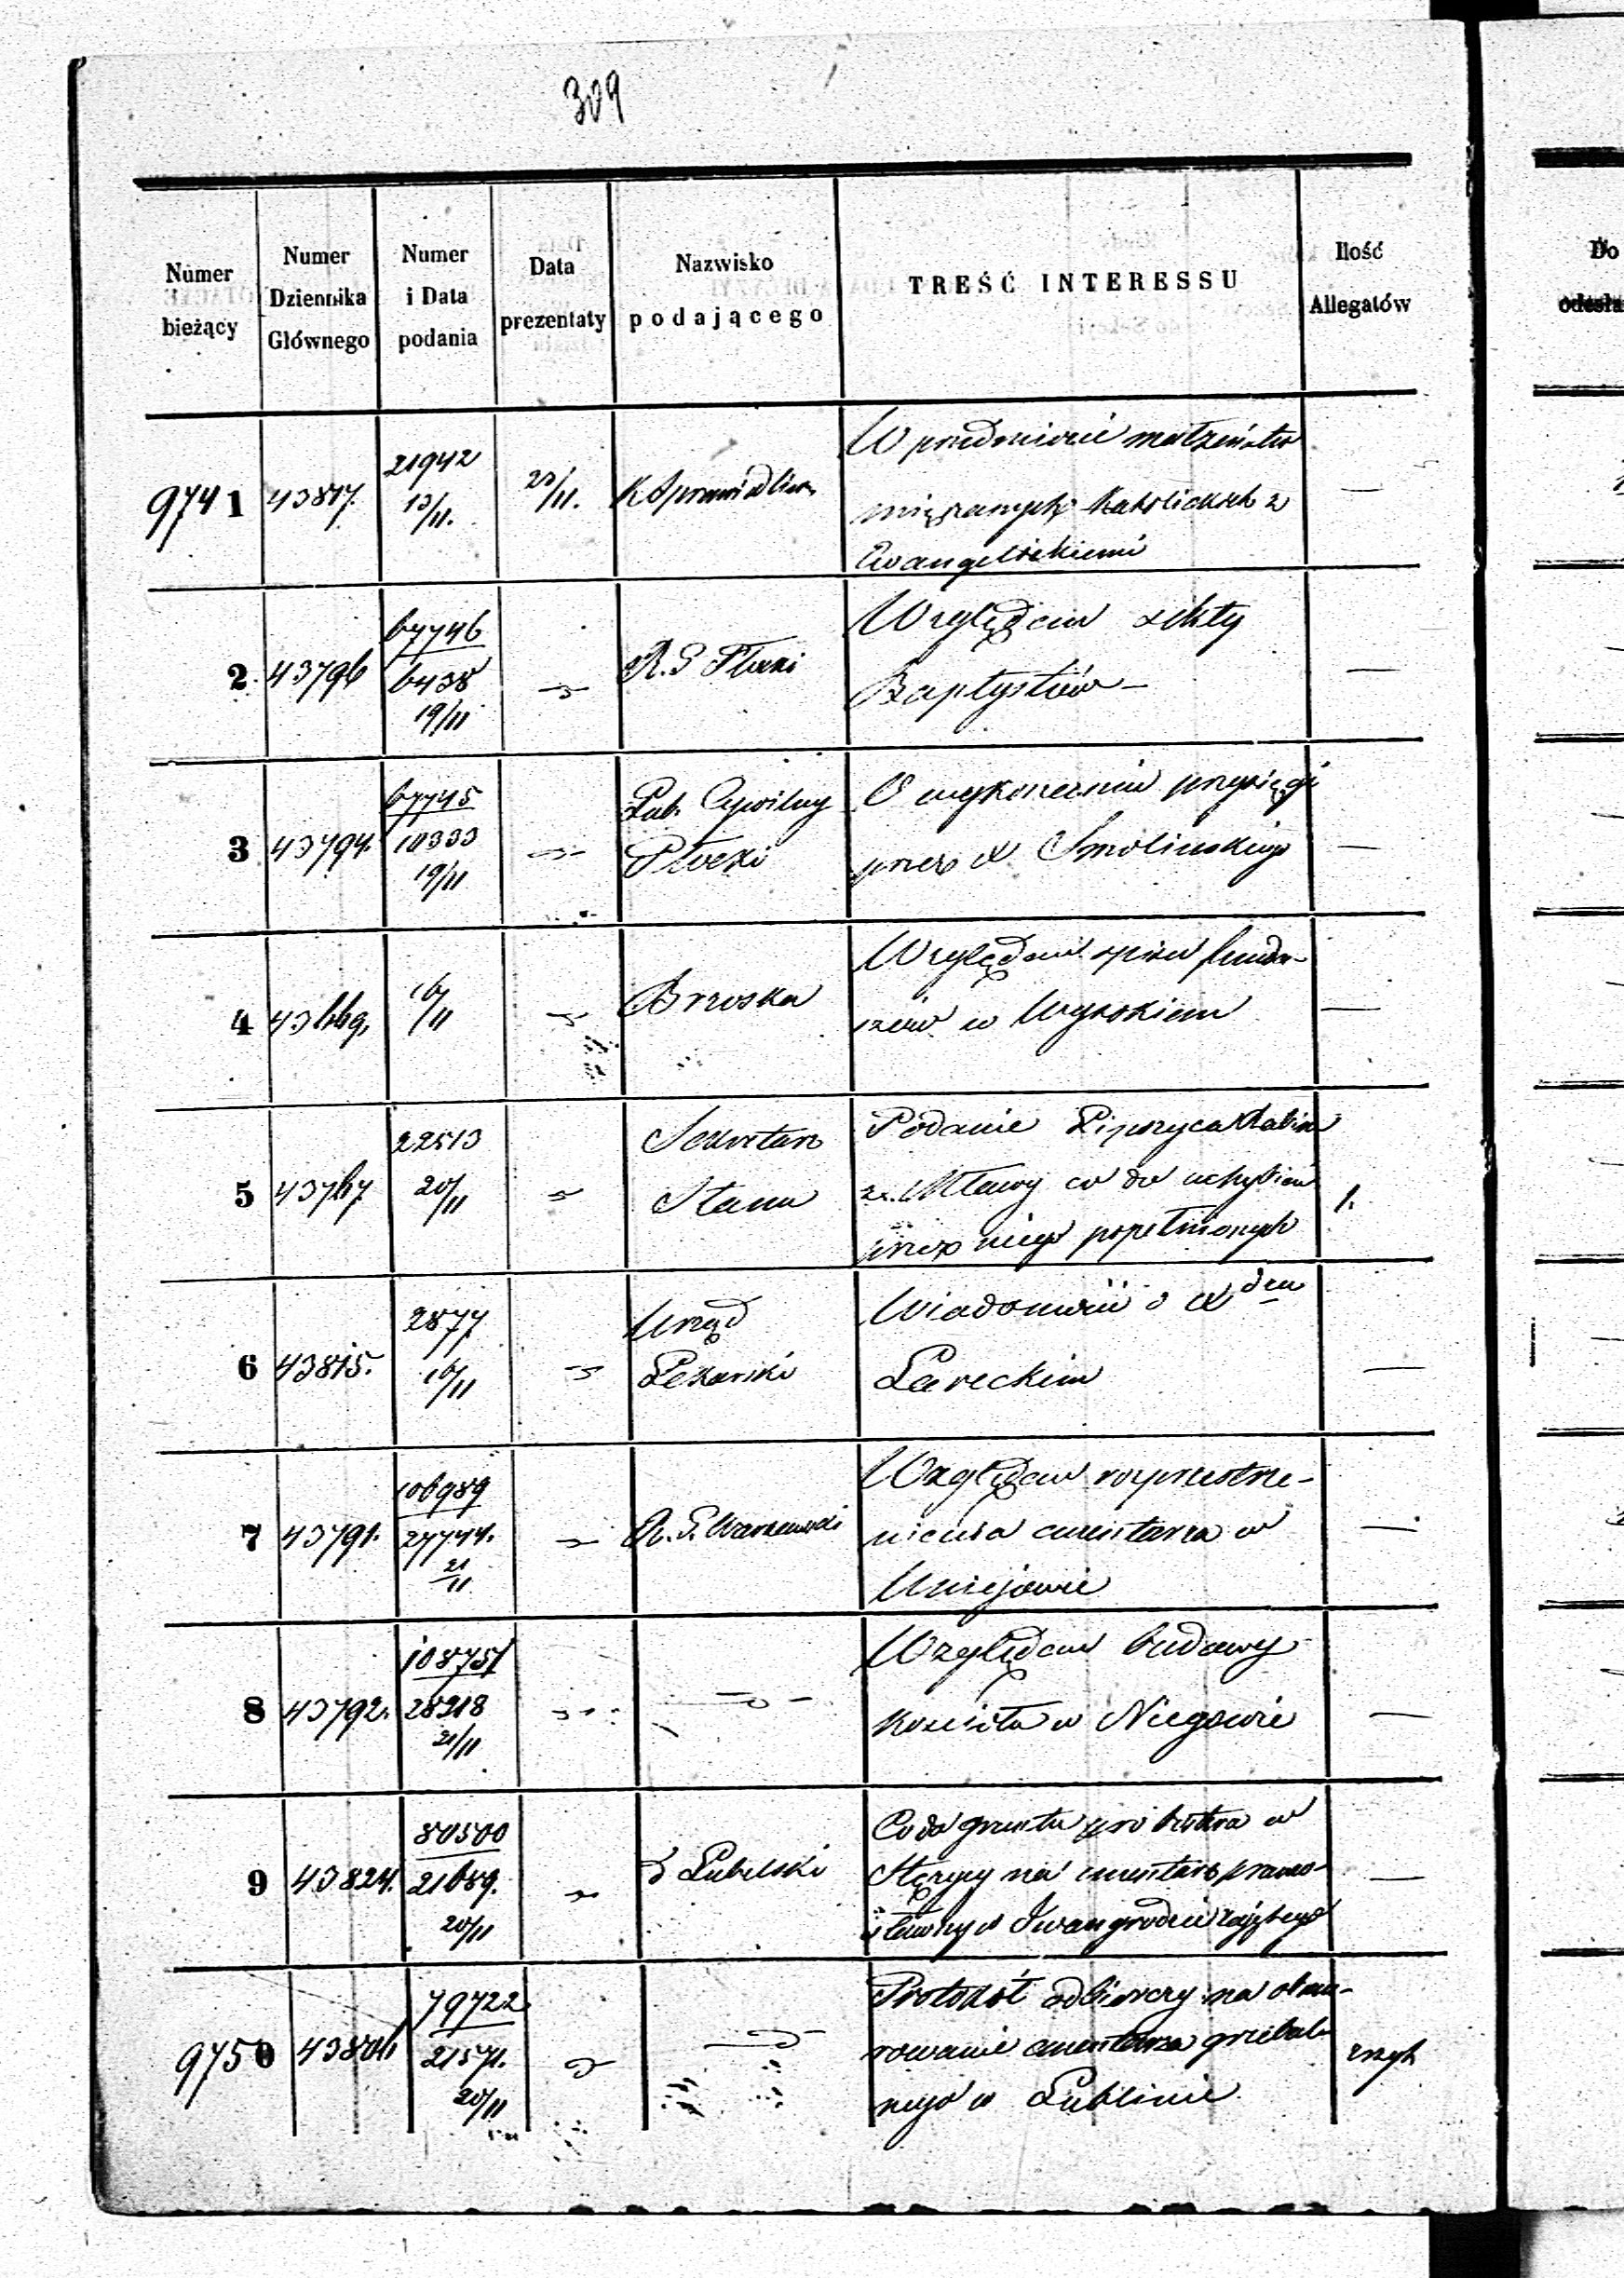 309
Numer bieżący
Numer Dziennika Głównego
Numer i Data podania
Data prezentaty
Nazwisko podającego
TREŚĆ INTERESSU
Ilość Allegatów
Do
9741 43817. 21942 13/11. 23/11. K Sprawiedliw. —
W przedmiocie małżeństw
mięszanych Katolickich z
Ewangelickiemi
2 43796 67746 6438 19/11 R. G Płocki —
Względem sekty
Baptystów —
3 43794. 67745 10333 19/11 Gub. Cywilny Płocki —
O wykonaniu przysięgi
przez X. Smolińskiego
4 43669, 16/11 Brzoska —
Względem spisu fundu-
szów w Wysokiem
5 43767 22513 20/11 Sekretarz Stanu 1.
Podanie Lipszyca Rabina
z Mławy co do uchybień
przez niego popełnionych
6 43815. 2877 16/11 Urząd Lekarski —
Wiadomość o X dzu
Lareckim
7 43791. 106989 27744. 21/11 R. G. Warszawski —
Względem rozprzestrze-
nienia cmentarza w
Uniejowie
8 43792. 108751 28218 21/11 —
Względem budowy
kościoła w Niegowie
9 43824. 80500 21689. 20/11 G Lubelski —
Co do gruntu probostwa w
Stężycy na cmentarz prawo-
sławny w Iwangrodzie zajętego
9750 43806 79722 21571. 20/11
Protokół odbiorczy na
rowanie cmentarza grzebal-
nego w Lublinie